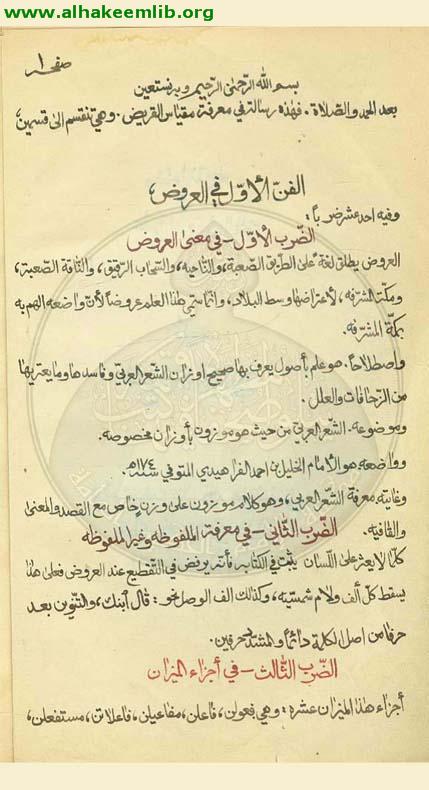 www.alhakeemlib.org
صفحه ١
بسم الله الرحمن الرحيم وبه نستعين
بعد الحمد والصلاة. فهذه رسالة في معرفة مقياس القريض. وهي تنقسم الى قسمين؛
الفن الأول في العروض،
وفيه احد عشر ضرباً:
الضرب الأول - في معنى العروض
العروض يطلق لغة على الطريق الصعبة، والناحيه، والسحاب الرقيق، والناقة الصعبة،
ومكة المشرفه، لأعتراضها وسط البلاد، وانما سمي هذا العلم عروضاً لأن واضعه الهم به
بمكة المشرفه.
واصطلاحاً. هو علم بأصول يعرف بها صحيح اوزان الشعر العربي وفاسدها وما يعتريها
من الزحافات والعلل.
وموضوعه. الشعر العربي من حيث هو موزون بأوزان مخصوصه.
وواضعه هو الأمام الخليل بن احمد الفراهيدي المتوفي سنة ١٧٤ هـ.
وغايته معرفة الشعر العربي، وهو كلام موزون على وزن خاص مع القصد والمعنى
والقافيه. الضرب الثاني - في معرفة الملفوظه وغير الملفوظه
كلما لا يعثر على اللسان يثبت في الكتابه فأنه يرفض في التقطيع عند العروض فعلى هذا
يسقط كل ألف ولام شمسيه، وكذلك الف الوصل نحو: قال أبنك، والتنوين بعد
حرفا من اصل الكلمة دائماً والمشدد بحرفين.
الضرب الثالث - في أجزاء الميزان
أجزاء هذا الميزان عشره: وهي فعولن، فاعلن، مفاعيلن، فاعلاتن، مستفعلن،